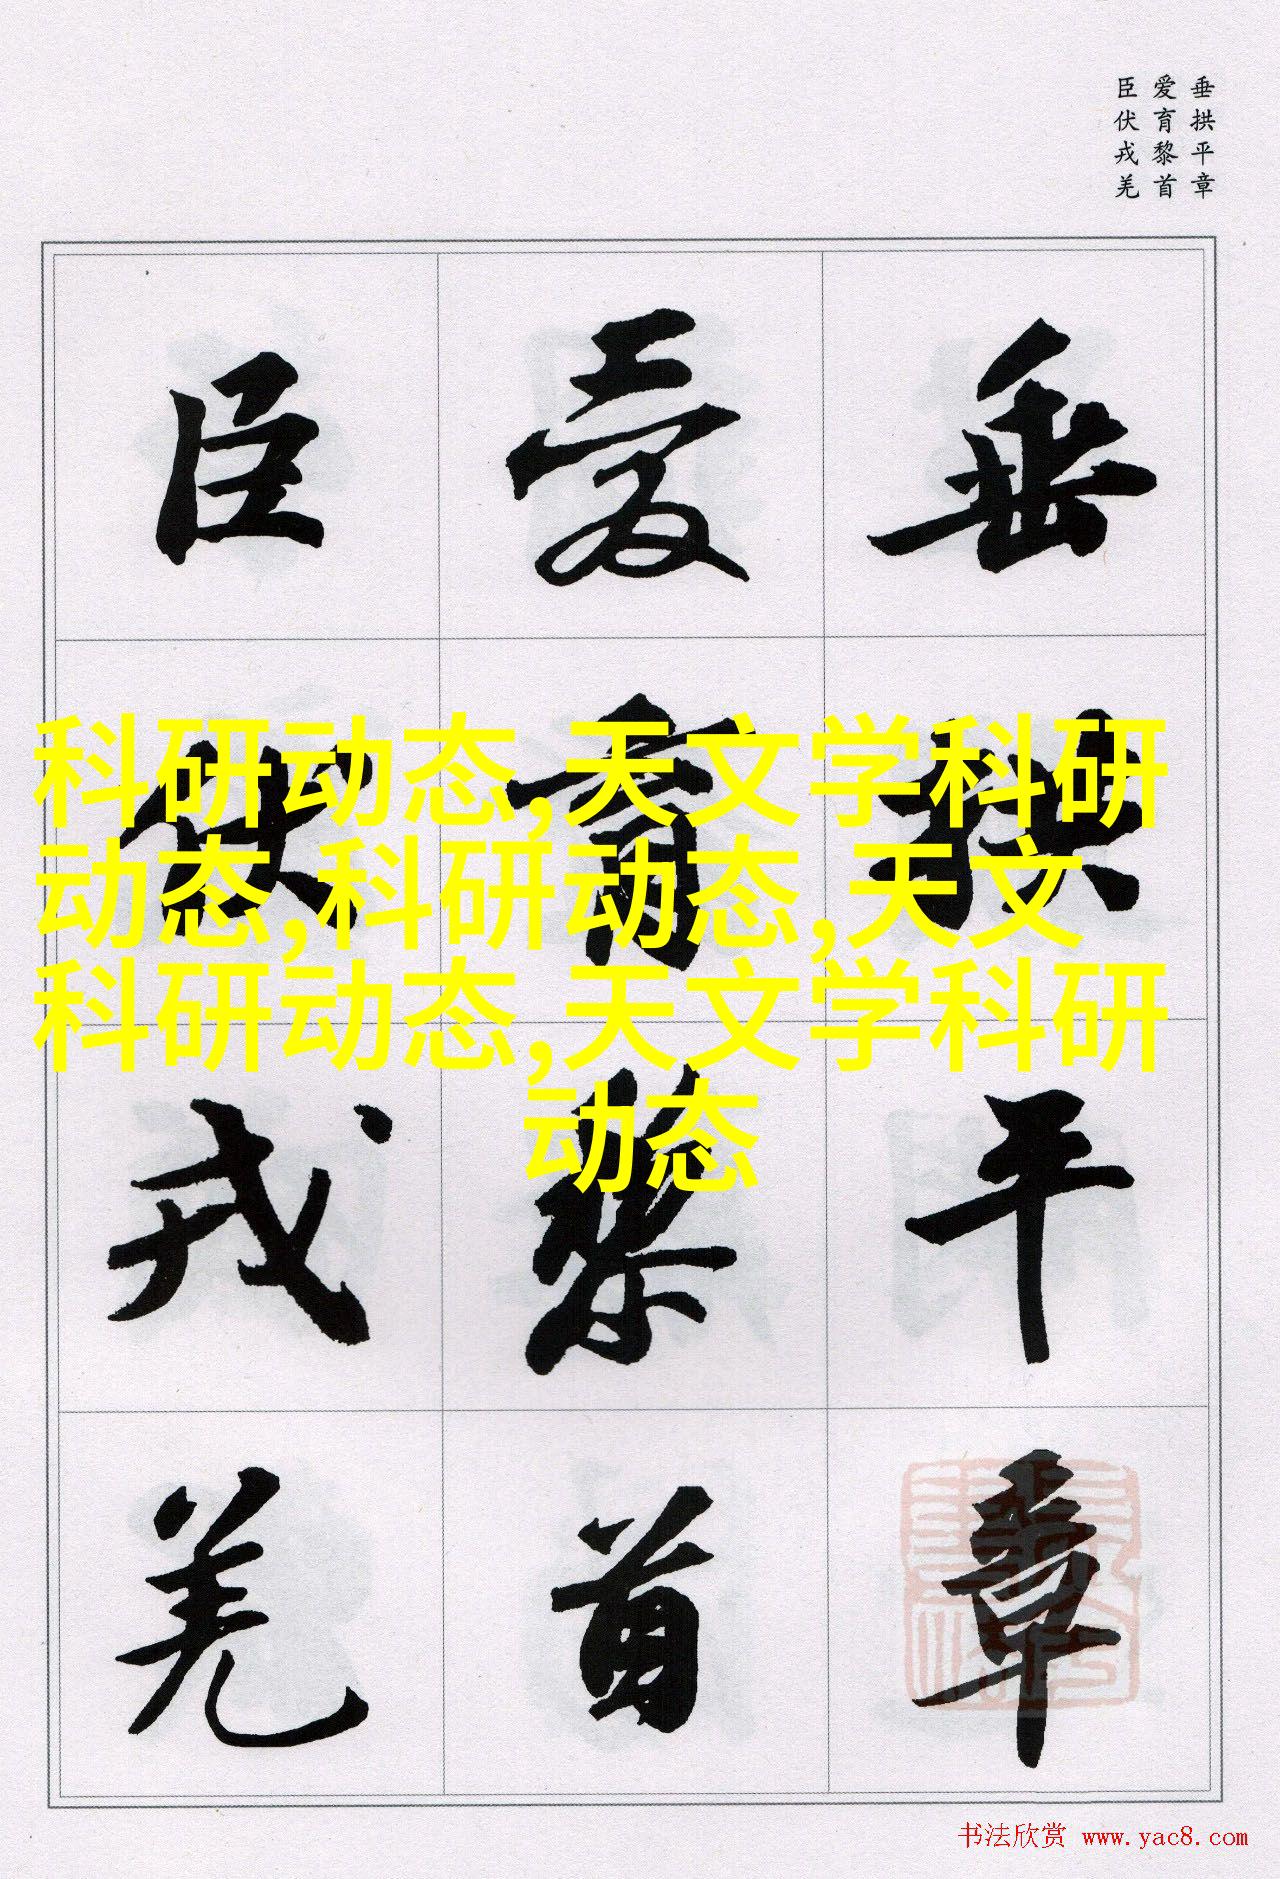 垂拱平章
爱育黎首
臣伏戎羌
垂拱平章
爱育黎首
臣伏戎羌
科研动态,天文学科研
动态,科研动态,天文
科研动态,天文学科研
动态
书法欣赏 www.yac8.com